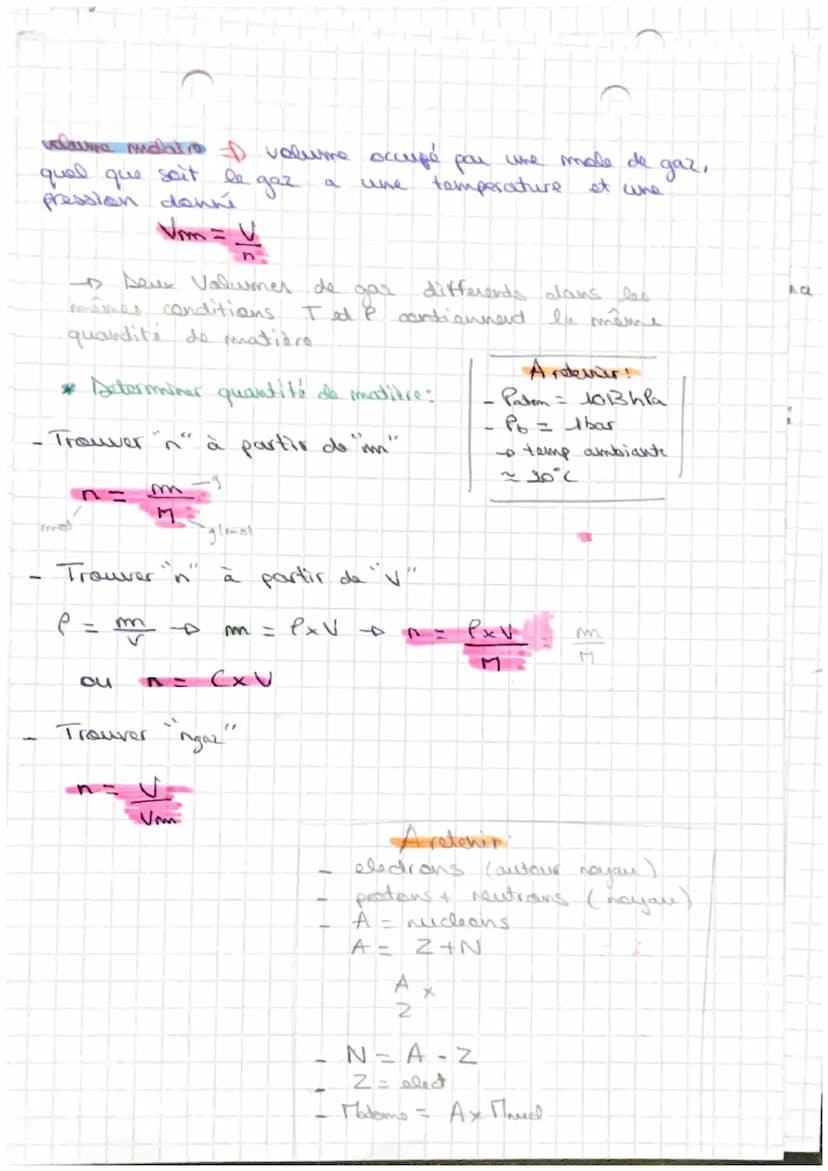 volume molaire ⇒ volume occupé par une mole de gaz,
quel que soit le gaz a une température et une
pression donné
Vm = V/n
→ Deux Volumes de gaz differents dans les
mêmes conditions T et P contiennent la même
quantité de matière
A retenir:
- Patm = 1013 hPa
- Pb = 1 bar
→ temp ambiante
* Determiner quantité de matière:
- Trouver "n" à partir de "m"
n = m/M
mol
g
g/mol
- Trouver "n" à partir de "V"
ρ = m/V → m = ρ×V → n = ρ×V/M = m/M
ou n = C×V
- Trouver "ngaz"
n = V/Vm
A retenir:
- electrons (autour noyau)
- protons + neutrons (noyau)
- A = nucleons
A = Z+N
A
Z X
- N = A - Z
- Z = elect
- Matome = A × Mnucl